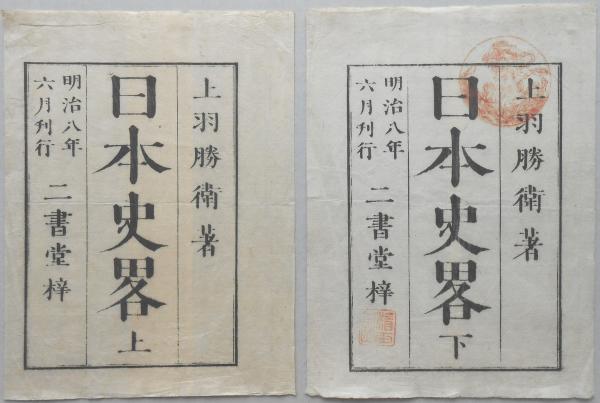 上羽勝衛著
日本史畧 上
明治八年
六月刊行
二書堂梓
上羽勝衛著
日本史畧 下
明治八年
六月刊行
二書堂梓